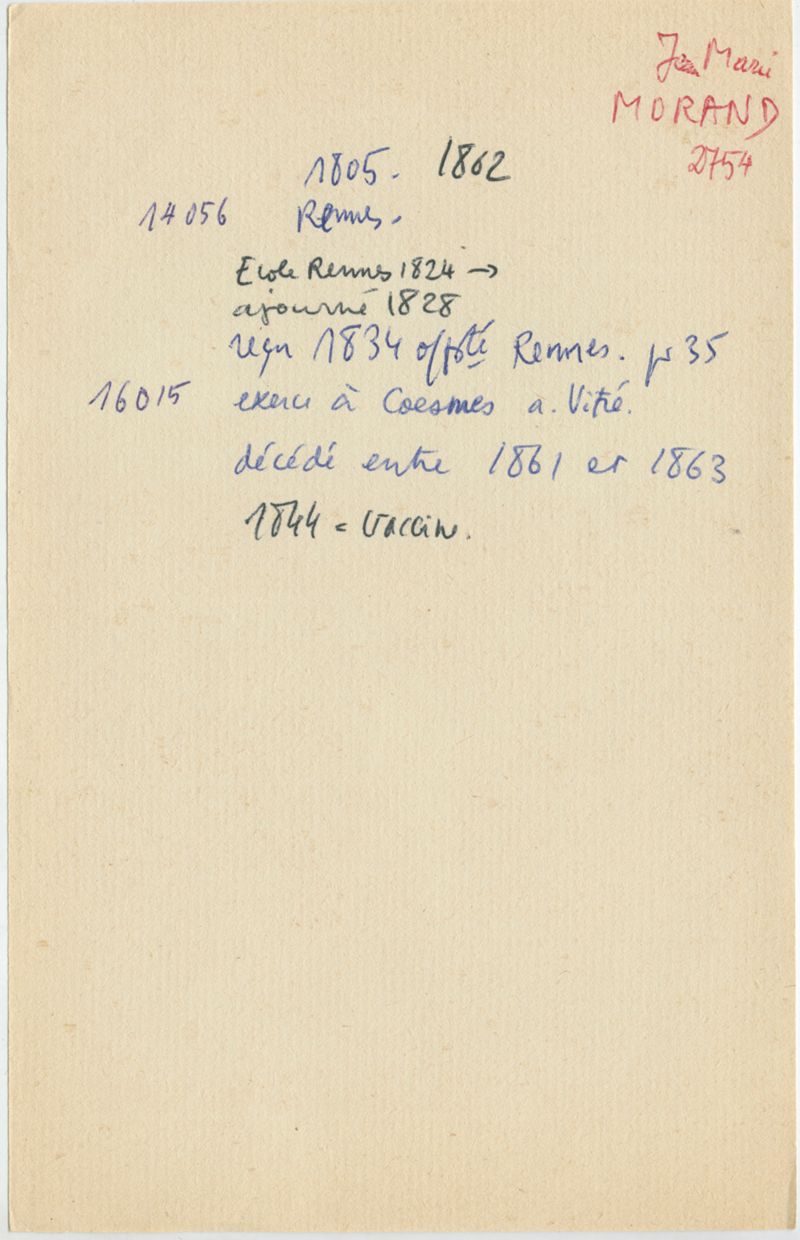 Jean Marie
MORAND
2754
1805. 1862
14056 Rennes.
Ecole Rennes 1824 →
ajourné 1828
reçu 1834 off sté Rennes. pr 35
16015 exerce à Coesmes a. Vitré.
décédé entre 1861 et 1863
1844 = Vaccin.